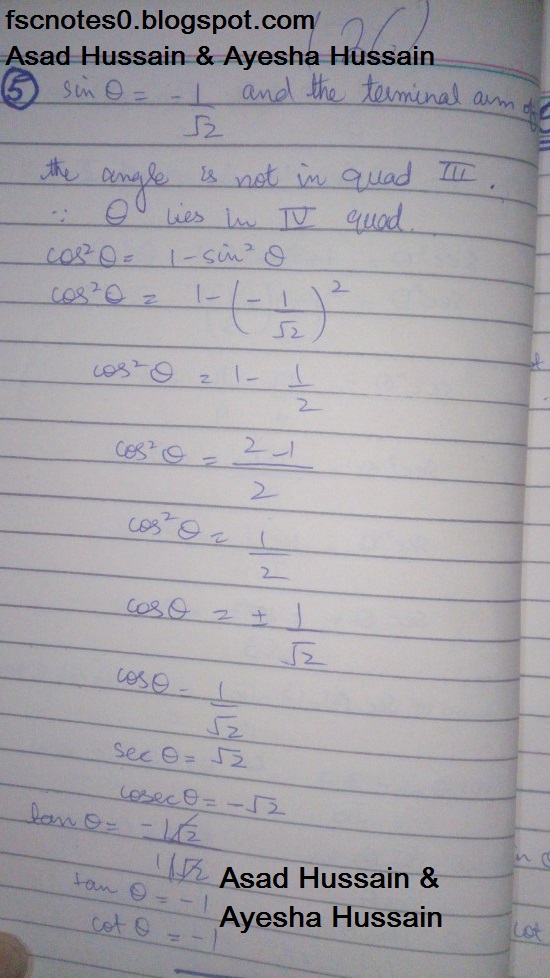 fscnotes0.blogspot.com
Asad Hussain & Ayesha Hussain
⑤ sin θ = -1/√2 and the terminal arm of
the angle is not in quad III.
∵ θ lies in IV quad.
cos²θ = 1-sin²θ
cos²θ = 1-(-1/√2)²
cos²θ = 1-1/2
cos²θ = 2-1/2
cos²θ = 1/2
cosθ = ±1/√2
cosθ = 1/√2
sec θ = √2
cosec θ = -√2
tan θ = -1/√2
1/√2
tan θ = -1
cot θ = -1
Asad Hussain &
Ayesha Hussain